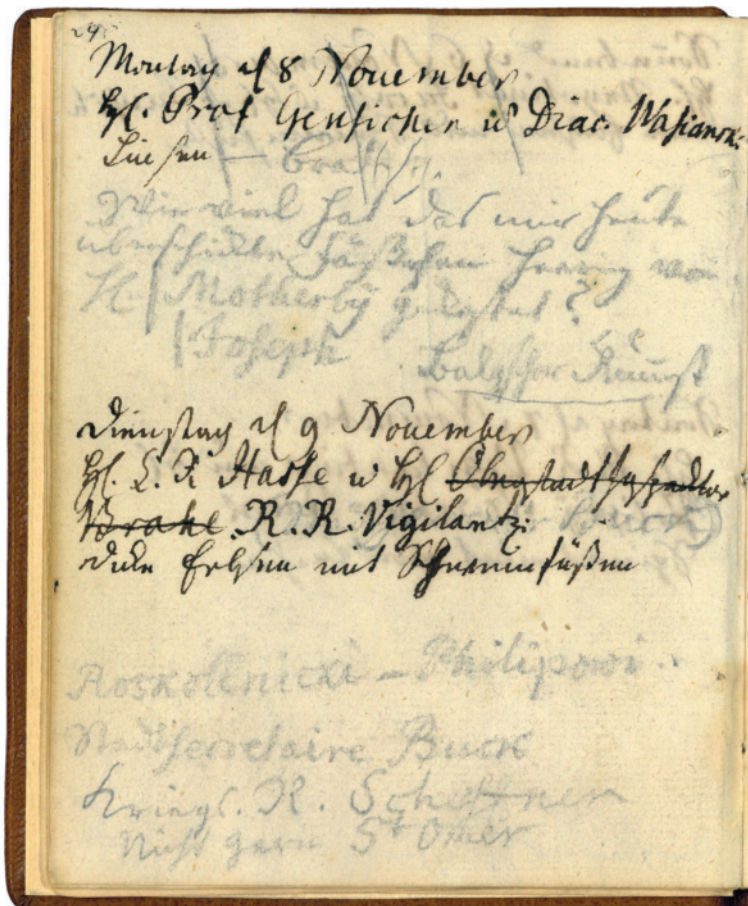 Montag d 8 November
HE. Prof Gensichen u Diac. Wasianski
Linsen —
Wie viel hat das mir heute
überschickte Fäßchen Hering von
HE Motherby gekostet?
Joseph
Dienstag d 9 November
HE. C. R Hasse u HE Oberstadtinspector
Brahl. R. R. Vigilanti
dicke Erbsen mit Schweinfüßen
Roskolenicki – Philipowi
Stadtsecretaire Buck
Kriegs. R. Scheffner
Nicht gern St Omer